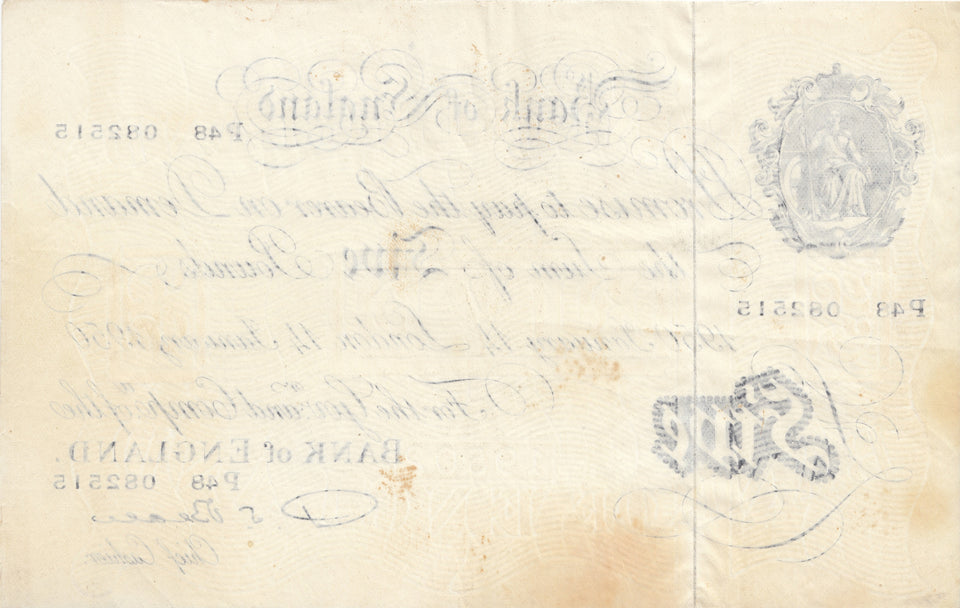 Bank of England
P48 082515
Promise to pay the Bearer on Demand
the Sum of Five Pounds
P48 082515
1950 January 14 London 14 January 1950
For the Govr. and Compa. of the
Five
BANK of ENGLAND.
P48 082515
Chief Cashier